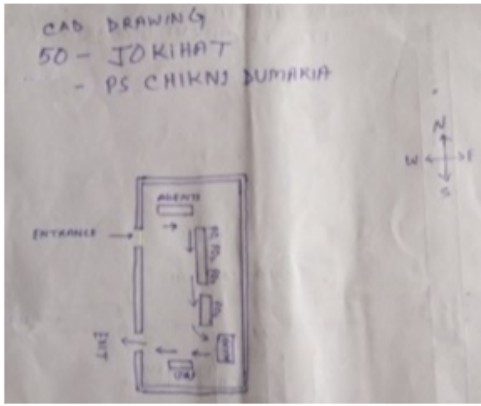 CAD DRAWING
50 - JOKIHAT
- PS CHIKNI DUMARIA
N
W E
S
AGENTS
ENTRANCE
EXIT